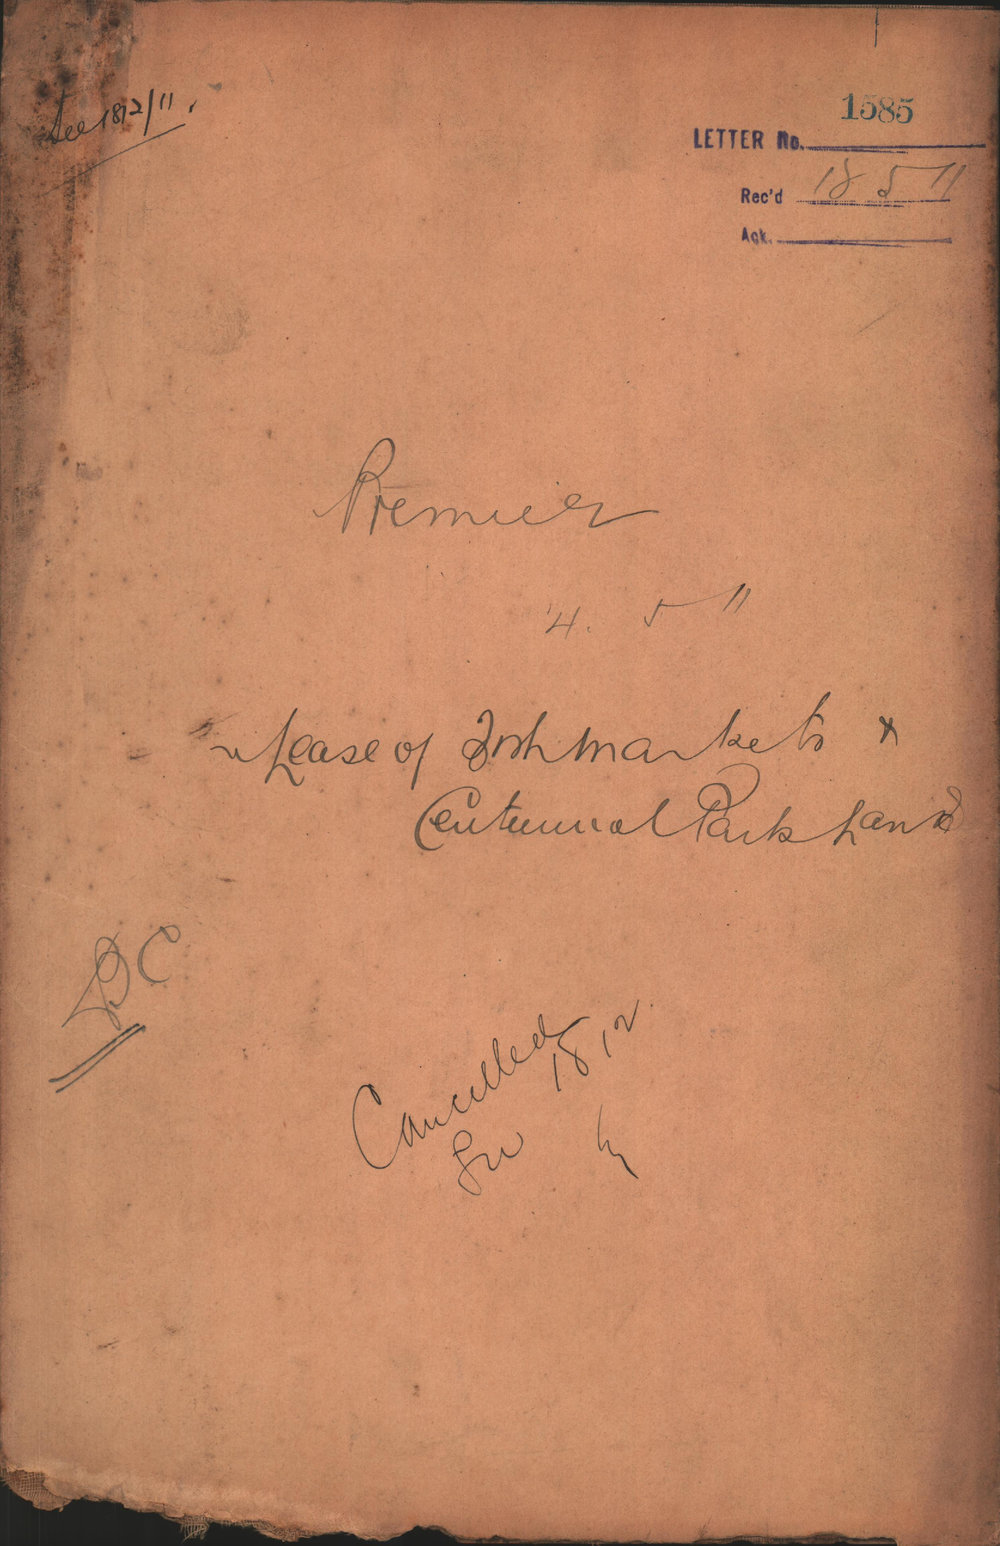 See 1812/11.
1585
LETTER No.
Rec'd 18 5 11
Ack.
Premier
4. 5 11
Lease of Fish Markets &
Centennial Park Land
DC
Cancelled
1812